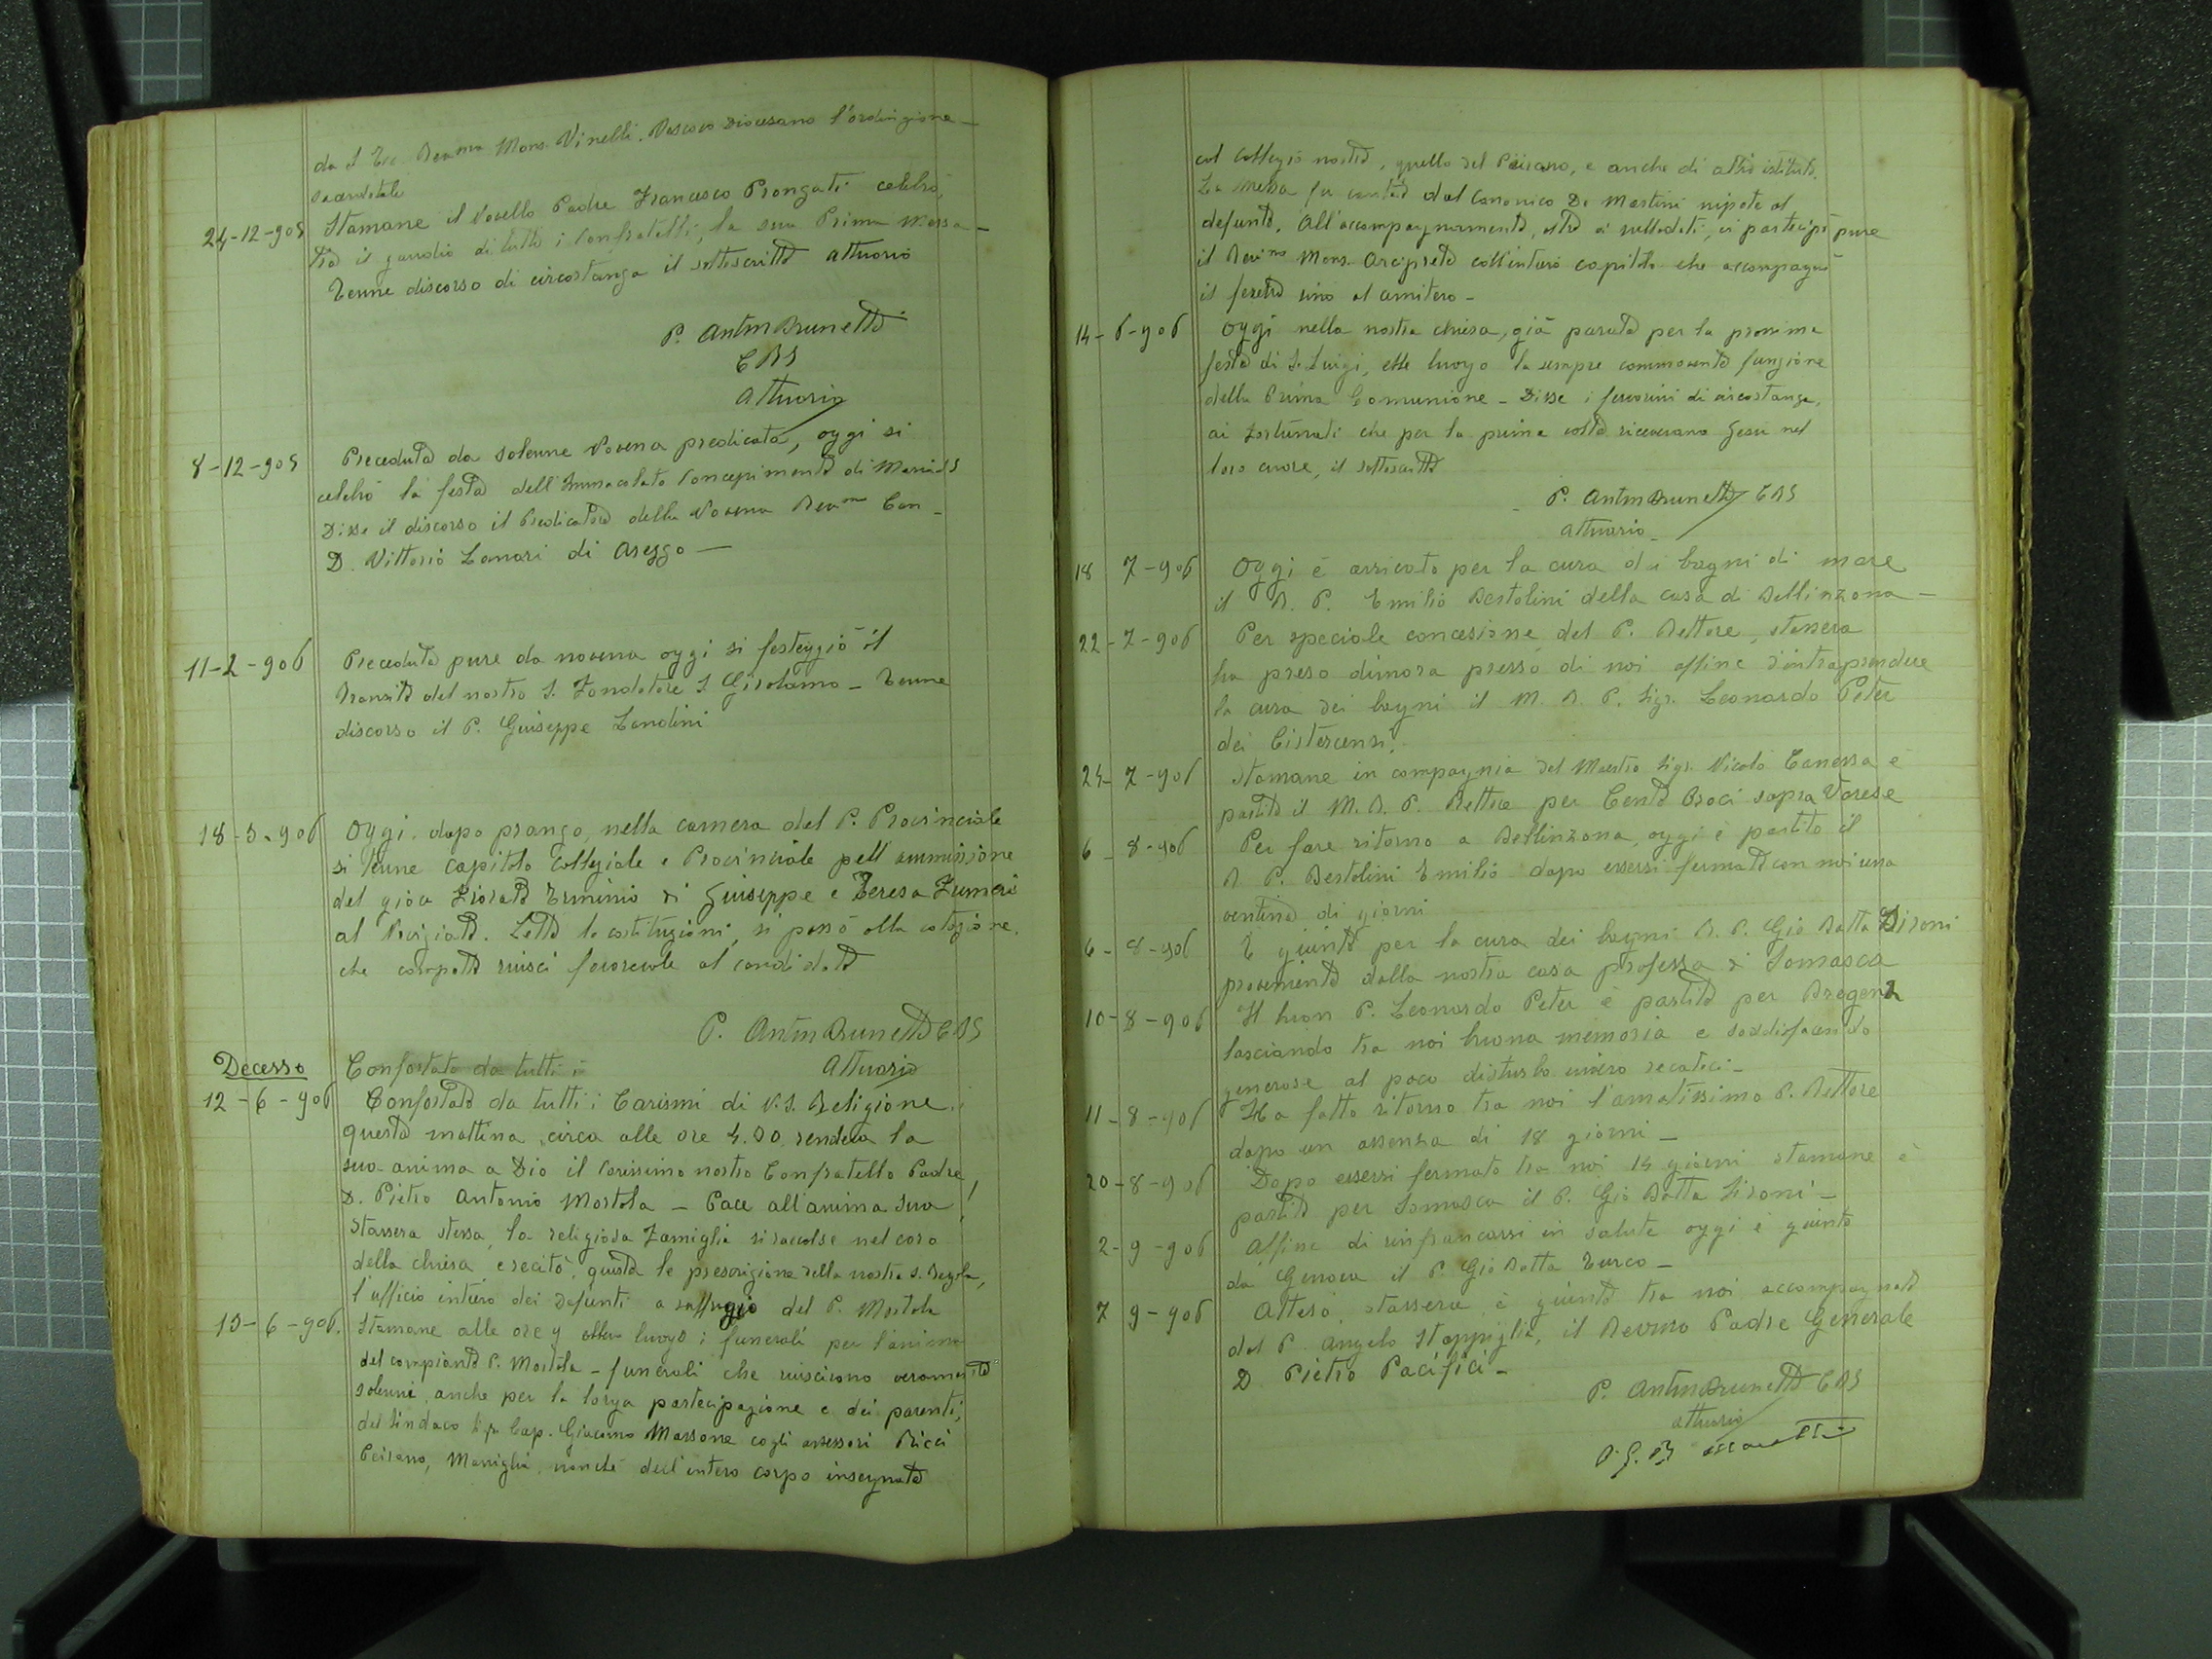 da S. Ecc. Rev.ma Mons. Vinelli. Vescovo Diocesano l'ordinazione
sacerdotale
24-12-905 Stamane il Novello Padre Francesco Prongati celebrò,
tra il gaudio di tutti i Confratelli, la sua Prima Messa -
Tenne discorso di circostanza il sottoscritto attuario
P. Antm Brunetti
CRS
Attuario
8-12-905 Preceduta da solenne Novena predicata, oggi si
celebrò la festa dell'Immacolato Concepimento di Maria SS
Disse il discorso il Predicatore della Novena Rev.mo Can-
D. Vittorio Lanari di Arezzo -
11-2-906 Preceduta pure da novena oggi si festeggiò il
Transito del nostro S. Fondatore S. Girolamo - Tenne
discorso il P. Giuseppe Landini
18-5-906 Oggi, dopo pranzo, nella camera del P. Provinciale
si tenne capitolo collegiale e Provinciale pell'ammissione
del giov. Erminio di Giuseppe e Teresa Fumeri
al Noviziato. Letto le costituzioni, si passò alla votazione,
che compatta riuscì favorevole al candidato
P. Antm Brunetti CRS
Attuario
Decesso Confortato da tutti i
12-6-906 Confortato da tutti i Carismi di N. S. Religione,
questa mattina, circa alle ore 4.30, rendeva la
sua anima a Dio il Carissimo nostro Confratello Padre
D. Pietro Antonio Mortola - Pace all'anima sua!
Stassera stessa, la religiosa Famiglia si raccolse nel coro
della chiesa e recitò, giusta le prescrizione della nostra S. Regola,
l'ufficio intiero dei Defunti a suffragio del P. Mortola
13-6-906. Stamane alle ore 9 ebber luogo i funerali per l'anima
del compianto P. Mortola - funerali che riuscirono veramente
solenni, anche per la larga partecipazione e dei parenti,
del Sindaco Sigr Cap. Giacomo Massone cogli assessori Ricci
Peirano, Maniglia, nonchè dell'intero corpo insegnate
col Collegio nostro, quello del Peirano, e anche di altri istituti.
La Messa fu cantata dal Canonico De Martini nipote al
defunto. All'accompagnamento, oltre ai sullodati, vi partecipò pure
il Rev.mo Mons. Arciprete coll'intero capitolo che accompagnò
il feretro sino al cimitero -
14-6-906 Oggi nella nostra chiesa, già parata per la prossima
festa di S. Luigi, ebbe luogo la sempre commovente funzione
della Prima Comunione - Disse i fervorini di circostanza,
ai fortunati che per la prima volta ricevevano Gesù nel
loro cuore, il sottoscritto
P. Antm Brunetti CRS
Attuario
18 7-906 Oggi è arrivato per la cura dei bagni di mare
il R. P. Emilio Bertolini della casa di Bellinzona -
22-7-906 Per speciale concesione del P. Rettore, stassera
ha preso dimora presso di noi affine d'intraprendere
la cura dei bagni il M. R. P. Sigr. Leonardo Peter
dei Cistercensi.
24-7-906 Stamane in compagnia del Maestro Sigr. Nicolò Canessa è
partito il M. R. P. Rettore per Cento Croci sopra Varese
6-8-906 Per fare ritorno a Bellinzona, oggi è partito il
R P. Bertolini Emilio dopo essersi fermato con noi una
ventina di giorni
6-8-906 È giunto per la cura dei bagni R. P. Gio Batta Sironi
proveniente dalla nostra casa professa di Somasca
10-8-906 Il buon P. Leonardo Peter è partito per Bregenz
lasciando tra noi buona memoria e soddisfacendo
generose al poco disturbo invero recatoci -
11-8-906 Ha fatto ritorno tra noi l'amatissimo P. Rettore
dopo un assenza di 18 giorni -
20-8-906 Dopo essersi fermato tra noi 14 giorni stamane è
partito per Somasca il P. Gio Batta Sironi -
2-9-906 Affine di rinfrancarsi in salute oggi è giunto
da Genova il P. Gio Batta Turco -
7 9-906 Atteso, stassera, è giunto tra noi accompagnato
dal P. Angelo Stoppiglia, il Rev.mo Padre Generale
D Pietro Pacifici -
P. Antm Brunetti CRS
attuario